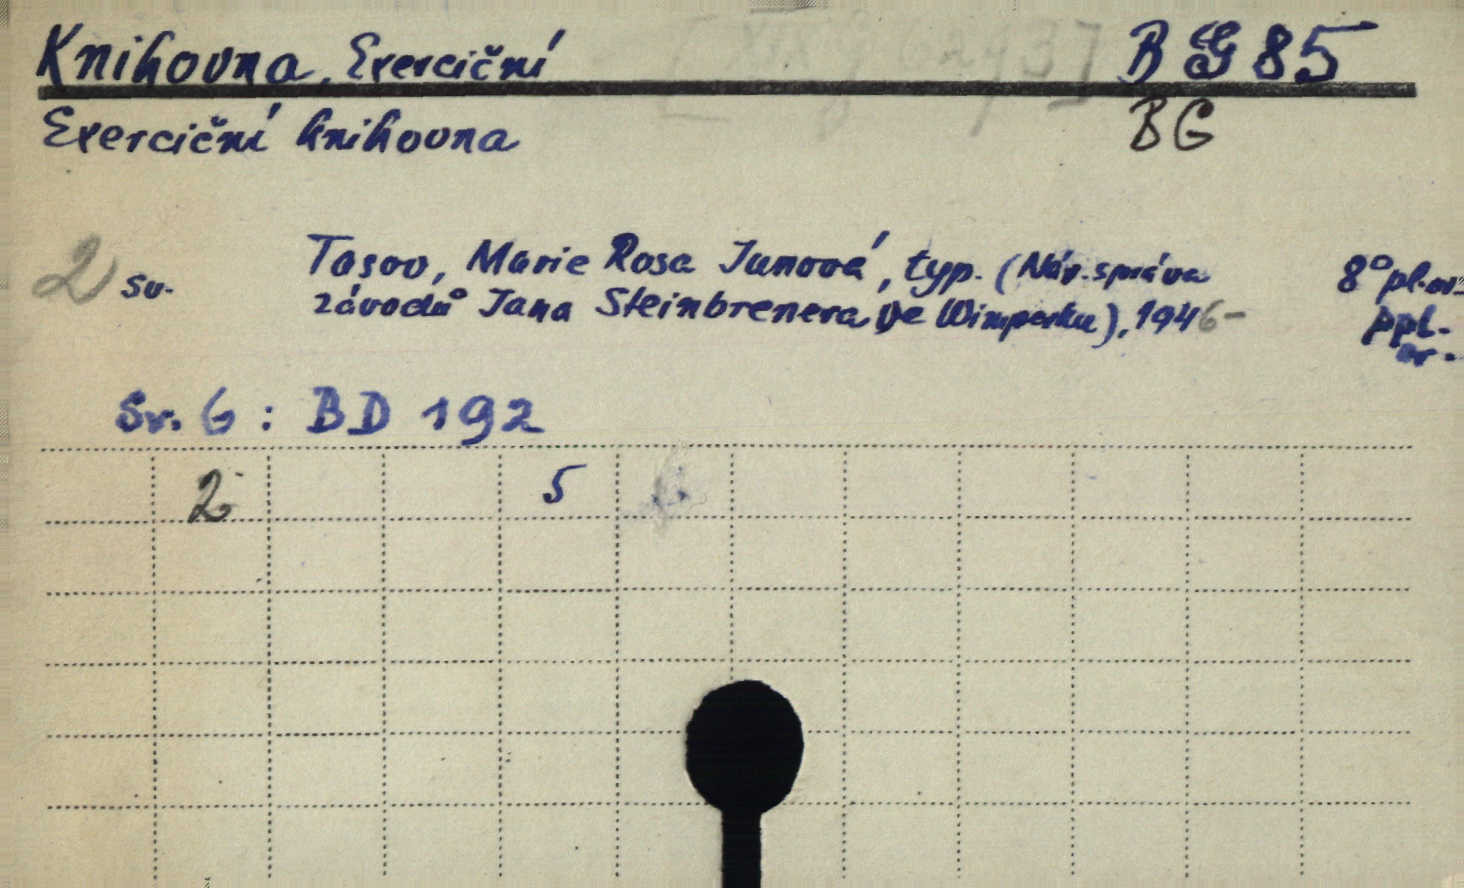 Knihovna, Exerciční B G 85
Exerciční knihovna BG
2 sv. Tasov, Marie Rosa Junová, typ. (Nár. správa 8° pl. or.
závodů Jana Steinbrenera ve Wimperku), 1946- ppl. or.
Sv. 6 : BD 192
2 5